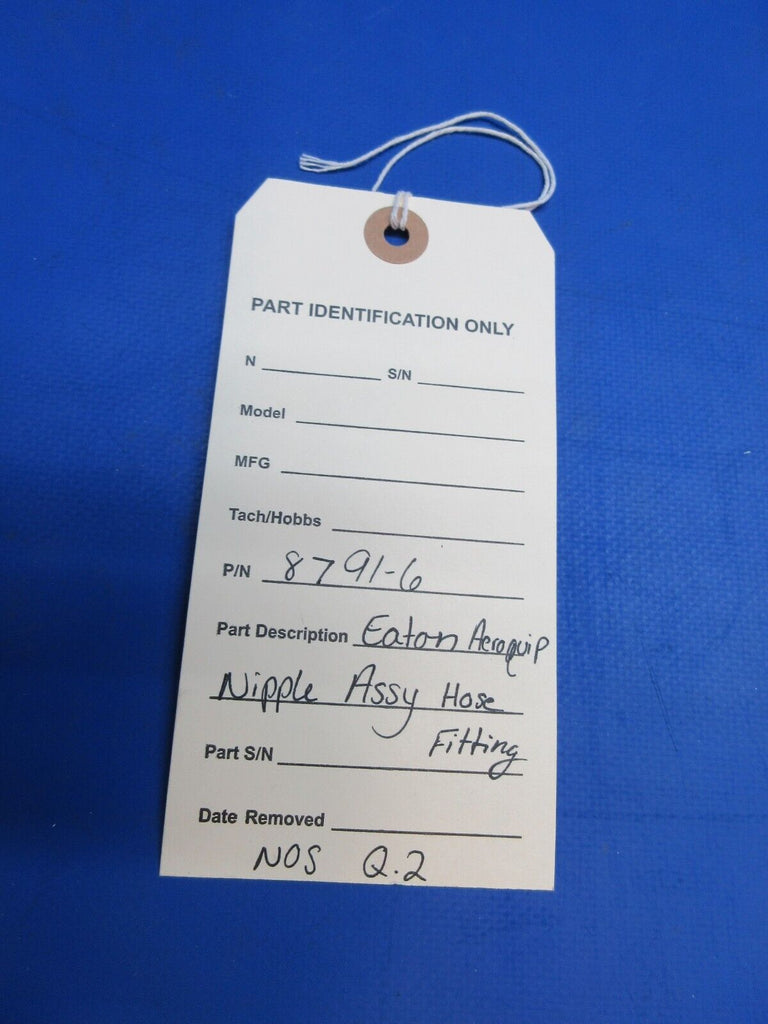 PART IDENTIFICATION ONLY
N S/N
Model
MFG
Tach/Hobbs
P/N 8791-6
Part Description Eaton Aeroquip
Nipple Assy Hose
Fitting
Part S/N
Date Removed
NOS Q.2